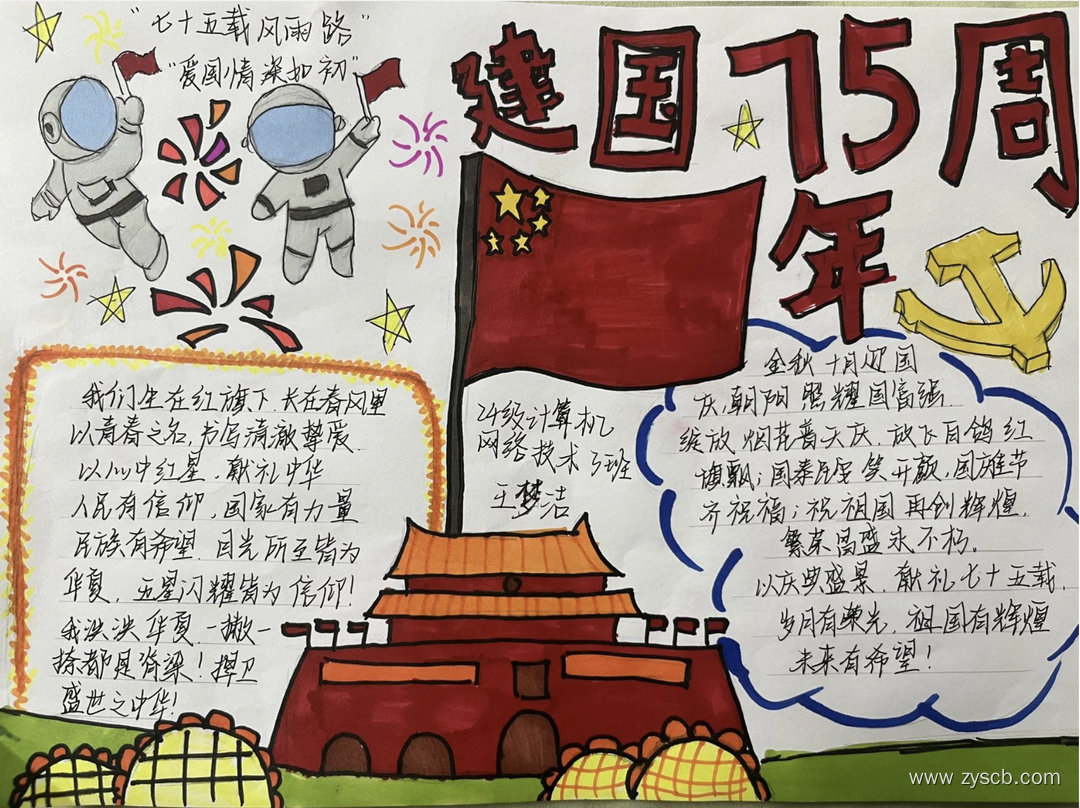 "七十五载风雨路"
"爱国情深如初"
建国75周
年
我们生在红旗下.长在春风里
以青春之名,书写清澈挚爱.
以心中红星,献礼中华
人民有信仰,国家有力量
民族有希望.目光所至皆为
华夏,五星闪耀皆为信仰!
我泱泱华夏,一撇一
捺都是脊梁!捍卫
盛世之中华!
24级计算机
网络技术3班
王梦洁
金秋十月迎国
庆,朝阳照耀国富强
绽放烟花普天庆,放飞白鸽红
旗飘;国泰民安笑开颜,国庆节
齐祝福;祝祖国再创辉煌,
繁荣昌盛永不朽.
以庆典盛景,献礼七十五载,
岁月有荣光,祖国有辉煌
未来有希望!
www.zyscb.com